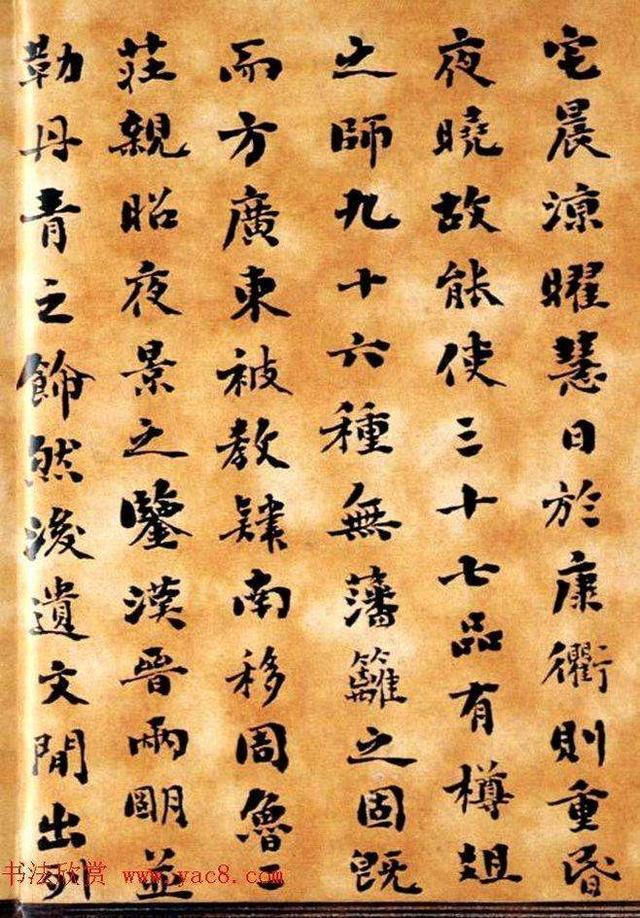 宅晨涼曜慧日於康衢則重昏
夜曉故能使三十七品有樽俎
之師九十六種無藩籬之固既
而方廣東被教肄南移周魯二
莊親昭夜景之鑒漢晉兩明並
勒丹青之飾然後遺文閒出列
书法欣赏 www.yac8.com